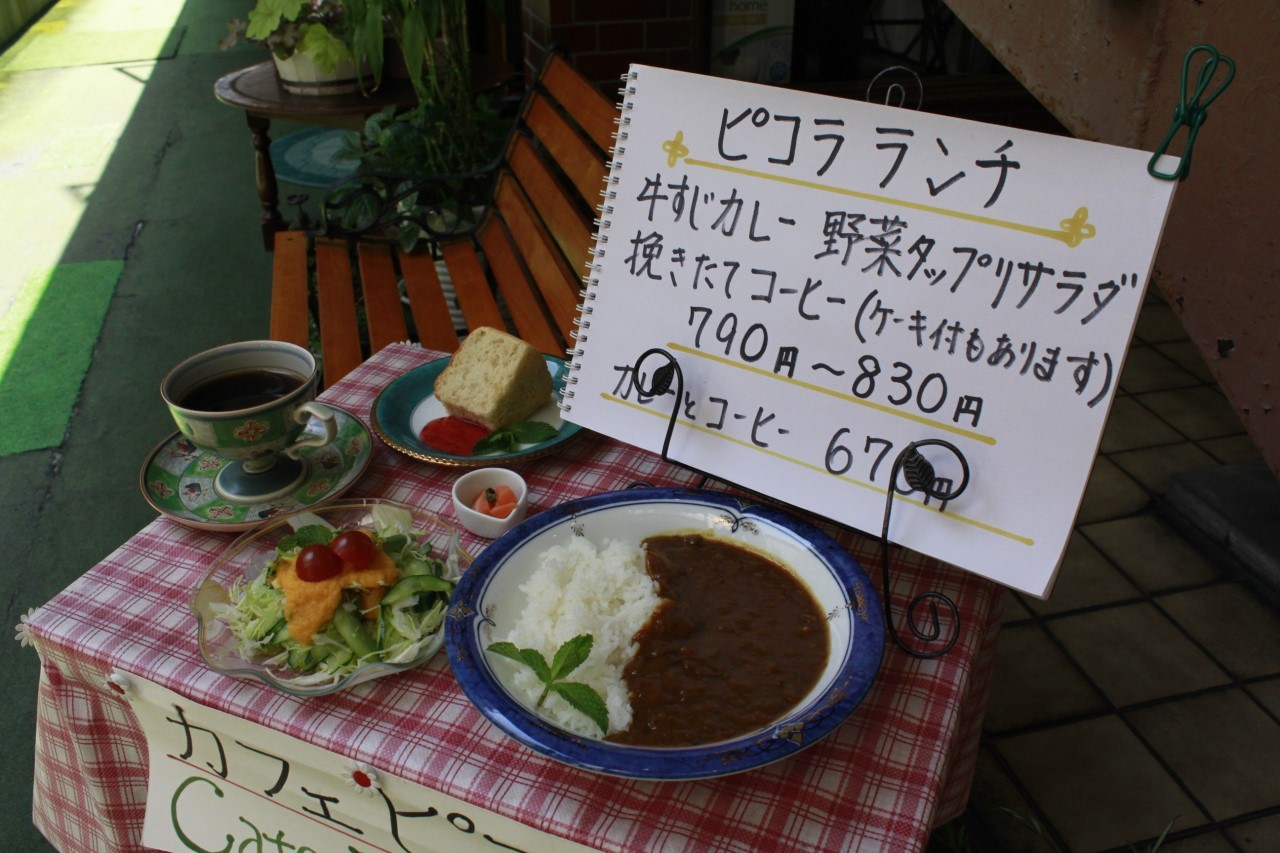 home
ピコラ ランチ
牛すじカレー 野菜タップリサラダ
挽きたてコーヒー(ケーキ付もあります)
790円〜830円
カレーとコーヒー 670円
カフェ ピ
Cafe